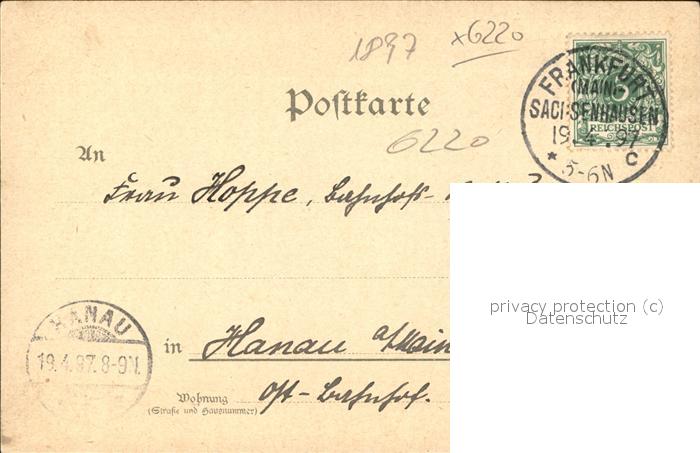 1897 x6220
FRANKFURT
(MAIN)
SACHSENHAUSEN
19.4.97
* 5-6N C
REICHSPOST
Postkarte
6220
An
Frau Hoppe, Bahnhofs-
privacy protection (c)
Datenschutz
HANAU
19.4.97. 8-9N.
in Hanau a/Main
Wohnung
(Straße und Hausnummer)
Ost-Bahnhof.